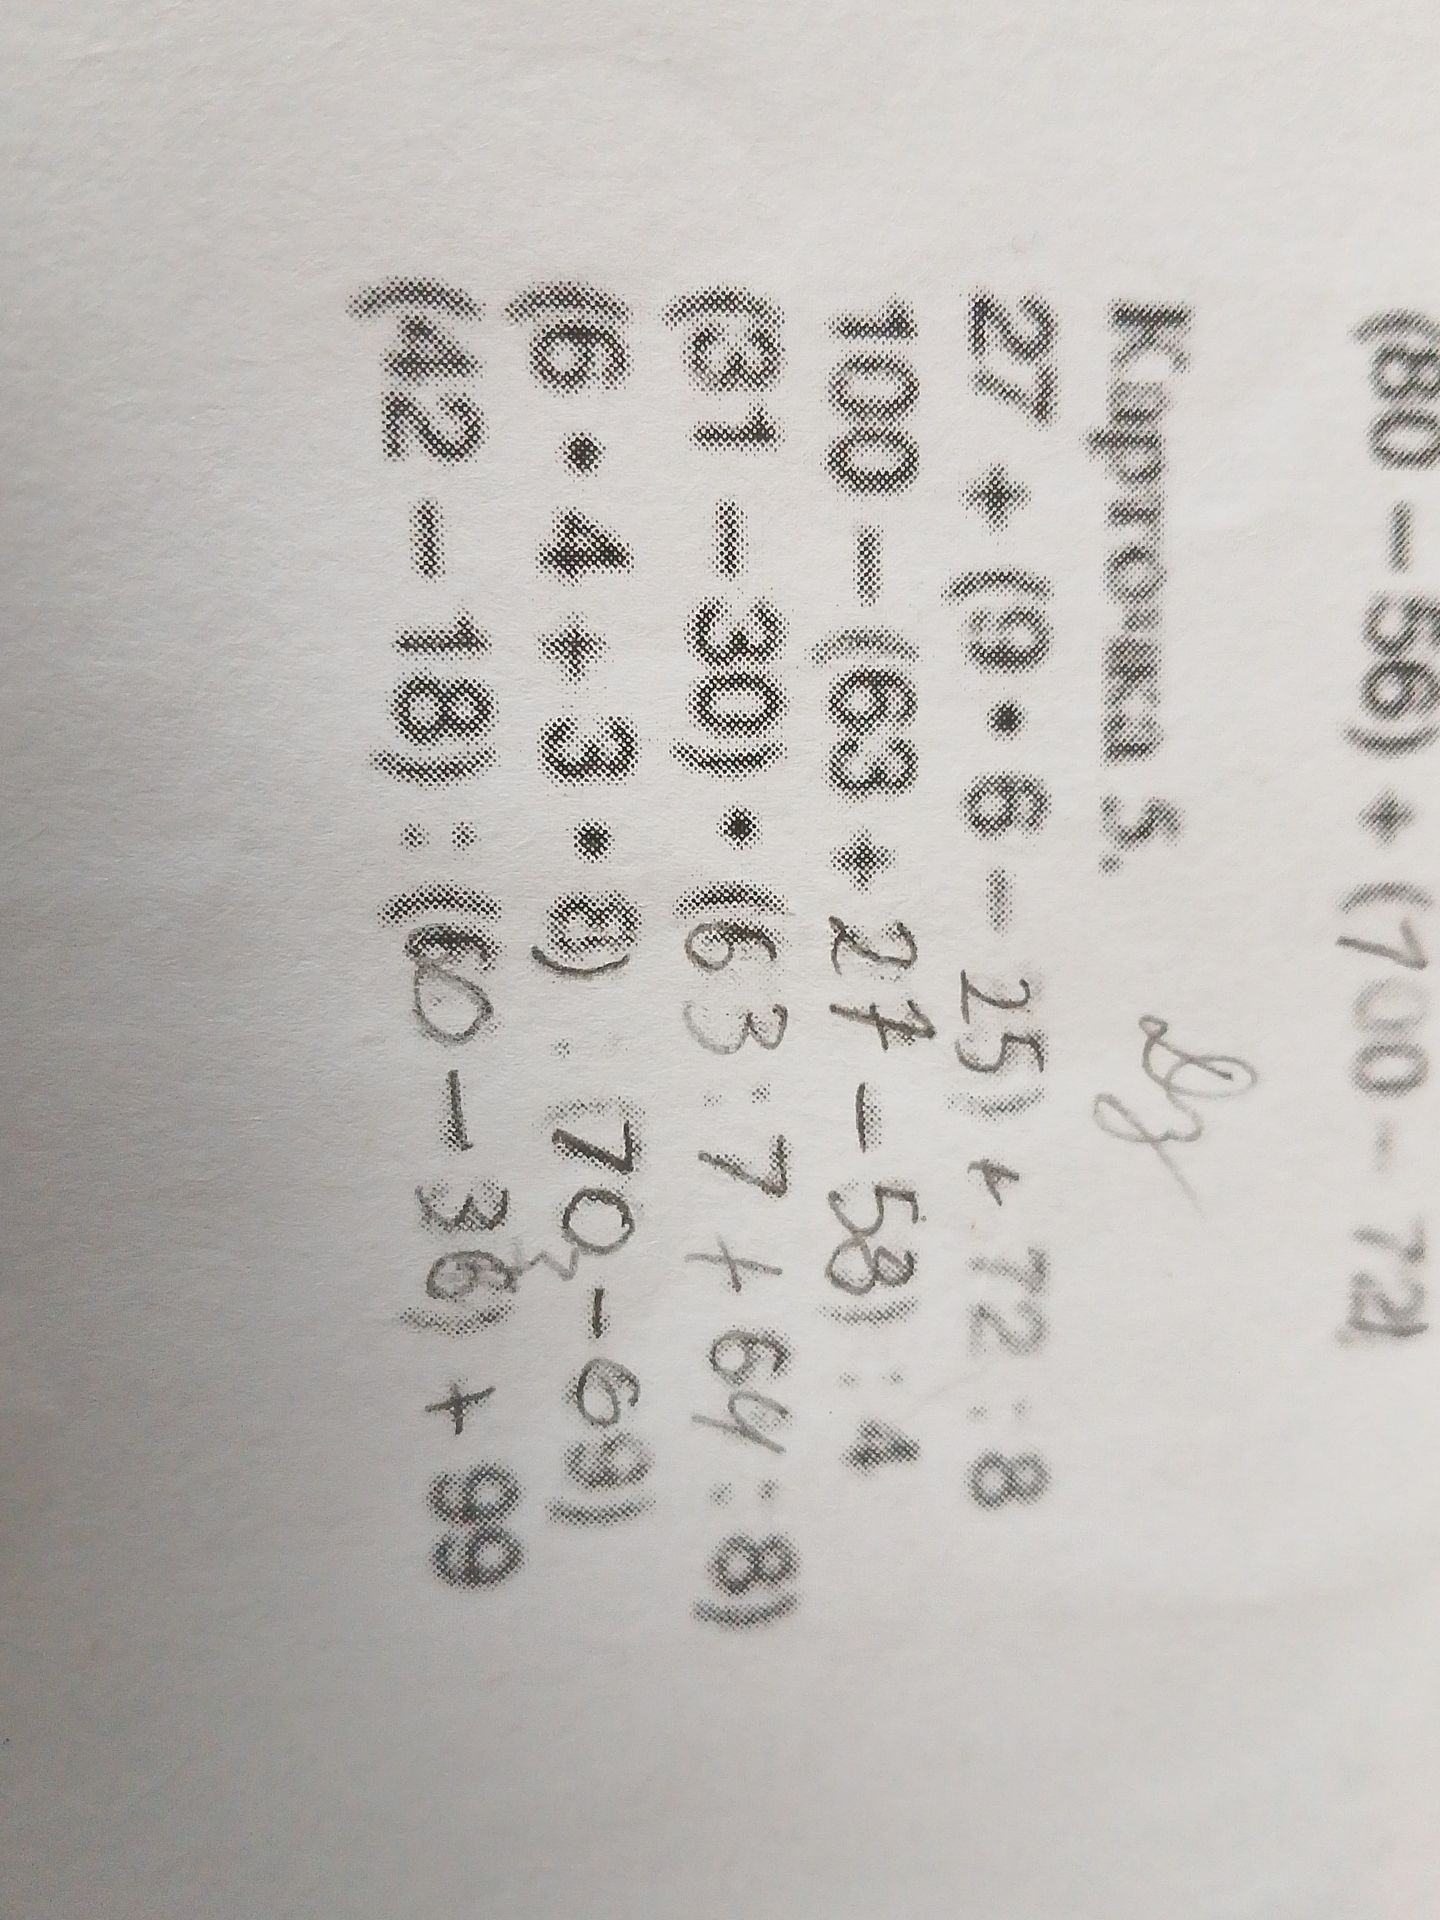 (80 – 56) + (700 – 72)
Карточка 5. Дз
27 + (9 • 6 – 25) + 72 : 8
100 – (63 + 27 – 58) : 4
(31 – 30) • (63 : 7 + 64 : 8)
(6 • 4 + 3 • 8) : (70 – 69)
(42 – 18) : (60 – 36) + 99